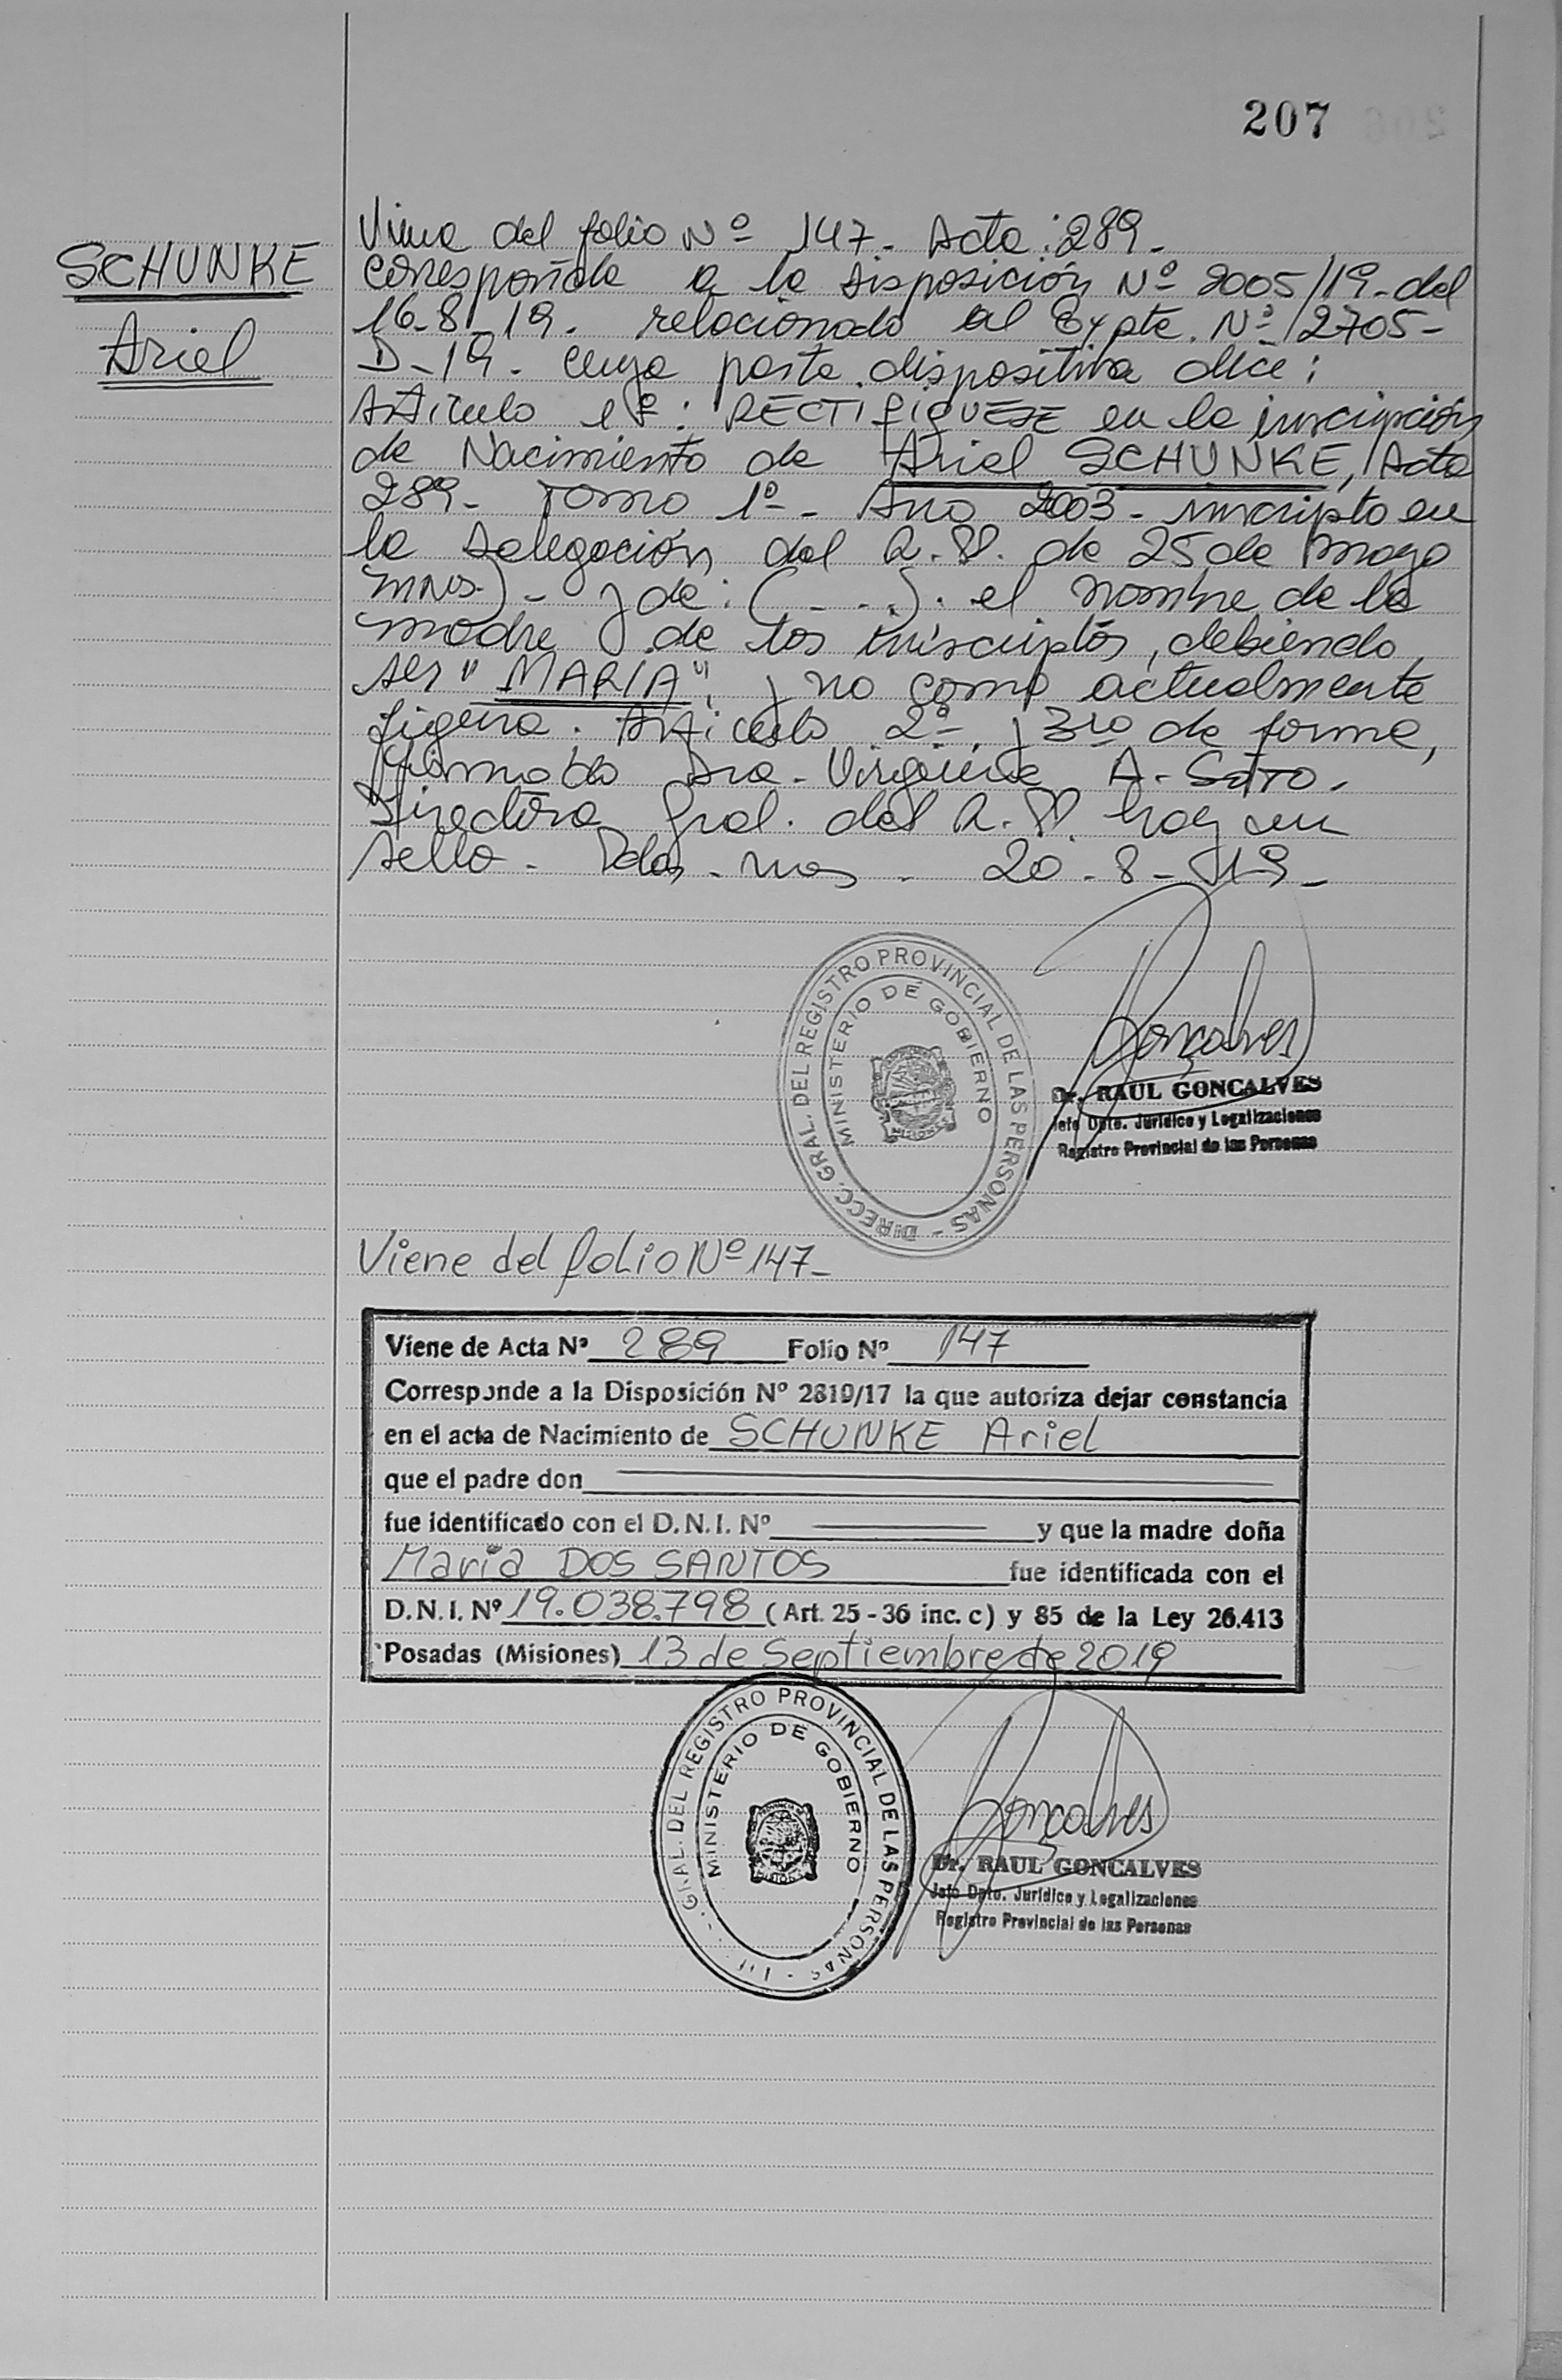 207
SCHUNKE
Ariel
Viene del folio Nº 147- Acta: 289-
Corresponde a la Disposición Nº 2005/19- del
16-8-19. relacionado al Expte. Nº 2705-
D-19- cuya parte dispositiva dice:
Artículo 1º: RECTIFIQUESE en la inscripción
de Nacimiento de Ariel SCHUNKE, Acta
289- Tomo 1º- Año 2003- inscripto en
la Delegación del R.P. de 25 de Mayo
Mnes.)- y de: (- - -). el nombre de la
madre de los inscriptos, debiendo
ser "MARIA", y no como actualmente
figura. Artículo 2º y 3ro de forma,
firmado Dra. Virginia A. Soto.
Directora Gral. del R.P. hay un
sello- Pdas. Mnes - 20-8-19-
DIRECC. GRAL. DEL REGISTRO PROVINCIAL DE LAS PERSONAS -
MINISTERIO DE GOBIERNO
MISIONES
Goncalves
Dr. RAUL GONCALVES
Jefe Dpto. Jurídico y Legalizaciones
Registro Provincial de las Personas
Viene del folio Nº 147-
Viene de Acta Nº 289 Folio Nº 147
Corresponde a la Disposición Nº 2819/17 la que autoriza dejar constancia
en el acta de Nacimiento de SCHUNKE Ariel
que el padre don
fue identificado con el D.N.I. Nº y que la madre doña
Maria DOS SANTOS fue identificada con el
D.N.I. Nº 19.038.798 (Art. 25 - 36 inc. c) y 85 de la Ley 26.413
Posadas (Misiones) 13 de Septiembre de 2019
GRAL. DEL REGISTRO PROVINCIAL DE LAS PERSONAS -
MINISTERIO DE GOBIERNO
Goncalves
Dr. RAUL GONCALVES
Jefe Dpto. Jurídico y Legalizaciones
Registro Provincial de las Personas